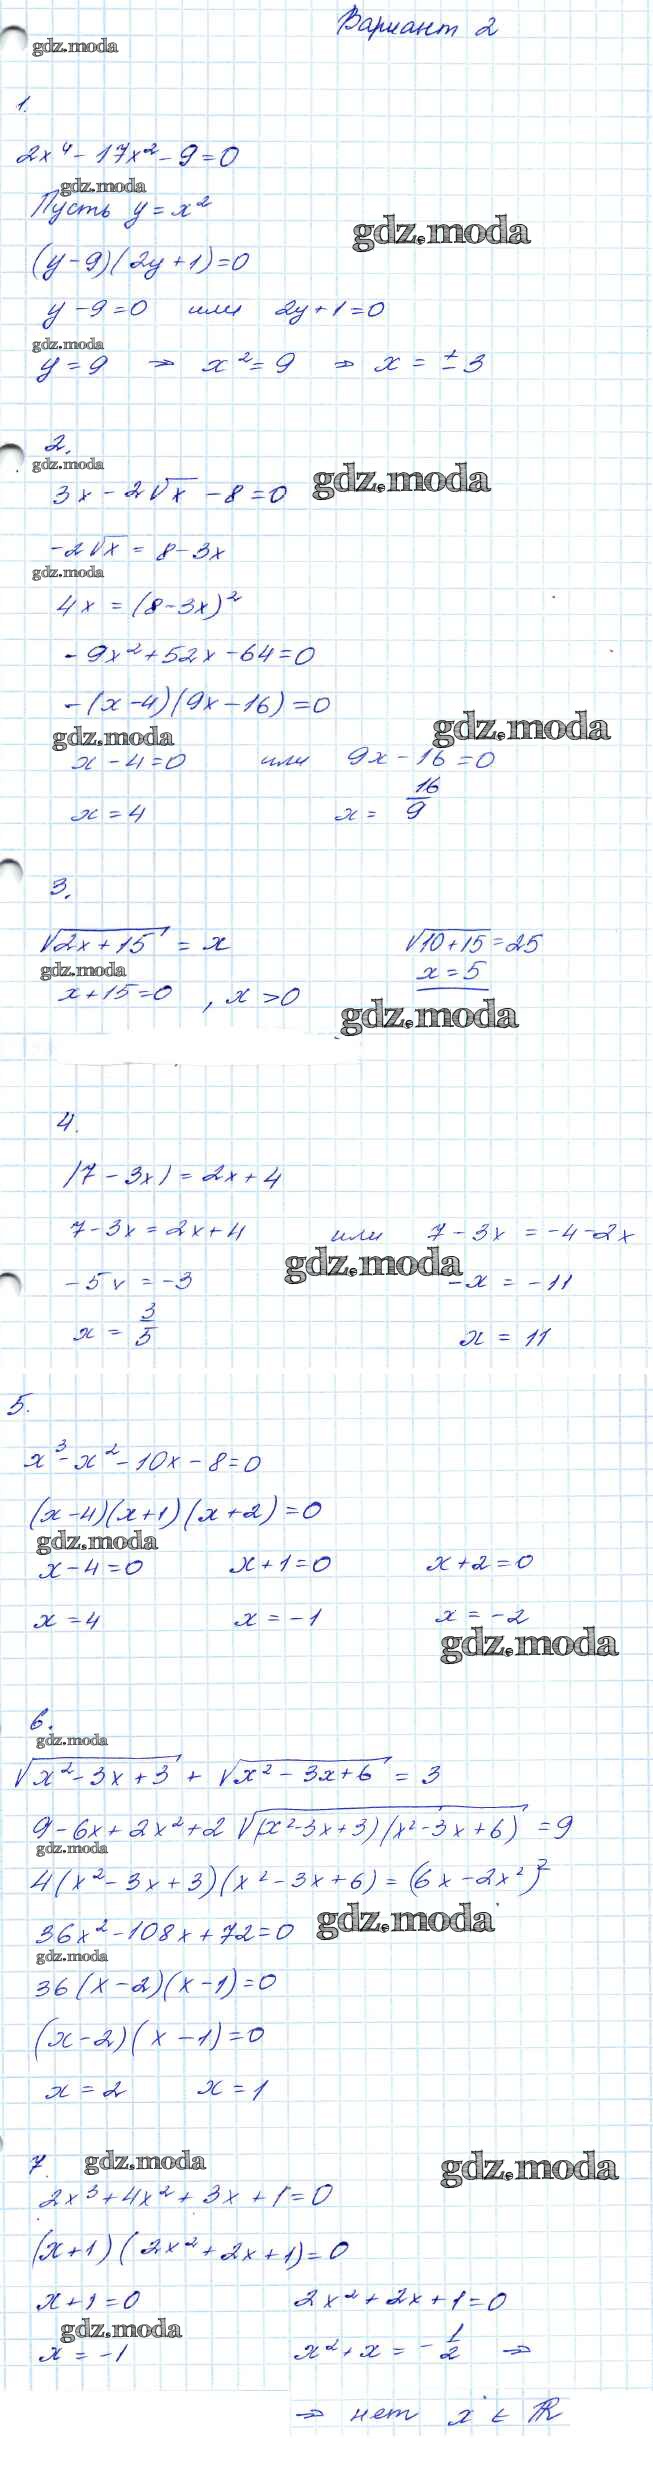 Вариант 2
gdz.moda
1.
2x⁴ - 17x² - 9 = 0
gdz.moda
Пусть y = x²
gdz.moda
(y - 9)(2y + 1) = 0
y - 9 = 0 или 2y + 1 = 0
gdz.moda
y = 9 ⇒ x² = 9 ⇒ x = ± 3
2.
gdz.moda
gdz.moda
3x - 2√x - 8 = 0
-2√x = 8 - 3x
gdz.moda
4x = (8 - 3x)²
- 9x² + 52x - 64 = 0
- (x - 4)(9x - 16) = 0
gdz.moda
gdz.moda
x - 4 = 0 или 9x - 16 = 0
x = 4 x = 16/9
3.
√2x + 15 = x √10 + 15 = 25
gdz.moda
x + 15 = 0 , x > 0 x = 5
gdz.moda
4.
|7 - 3x| = 2x + 4
7 - 3x = 2x + 4 или 7 - 3x = -4 - 2x
gdz.moda
-5x = -3 -x = -11
x = 3/5 x = 11
5.
x³ - x² - 10x - 8 = 0
(x - 4)(x + 1)(x + 2) = 0
gdz.moda
x - 4 = 0 x + 1 = 0 x + 2 = 0
x = 4 x = -1 x = -2
gdz.moda
6.
gdz.moda
√x² - 3x + 3 + √x² - 3x + 6 = 3
9 - 6x + 2x² + 2√(x² - 3x + 3)(x² - 3x + 6) = 9
gdz.moda
4(x² - 3x + 3)(x² - 3x + 6) = (6x - 2x²)²
gdz.moda
36x² - 108x + 72 = 0
gdz.moda
36(x - 2)(x - 1) = 0
(x - 2)(x - 1) = 0
x = 2 x = 1
7.
gdz.moda
gdz.moda
2x³ + 4x² + 3x + 1 = 0
(x + 1)(2x² + 2x + 1) = 0
x + 1 = 0 2x² + 2x + 1 = 0
gdz.moda
x = -1 x² + x = - 1/2 ⇒
⇒ нет x ∈ ℝ